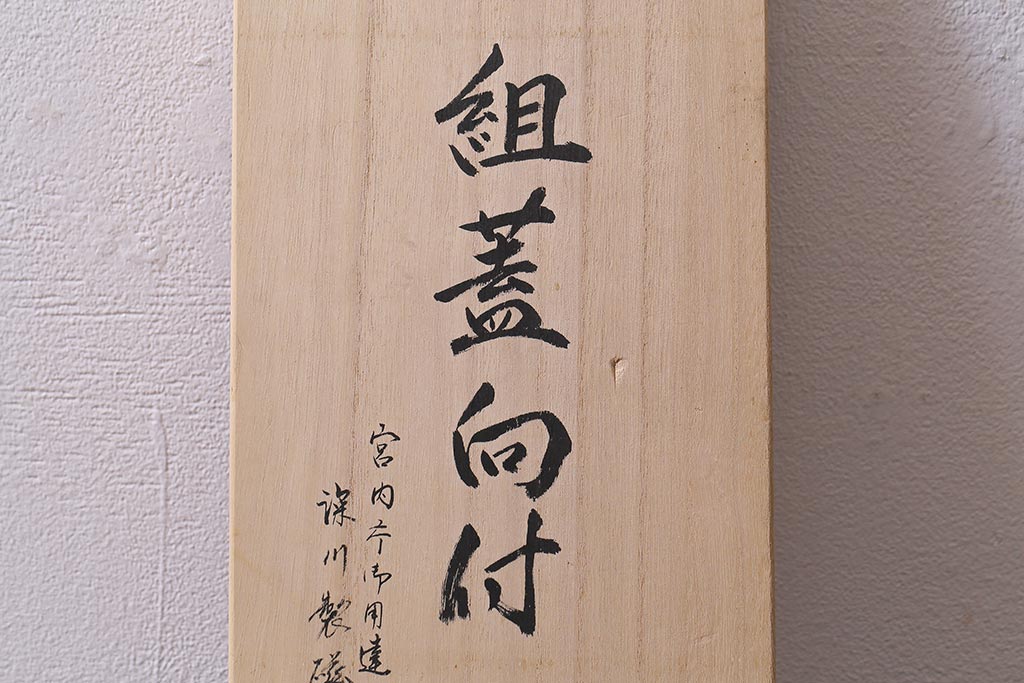 組蓋向付
宮内庁御用達
深川製磁